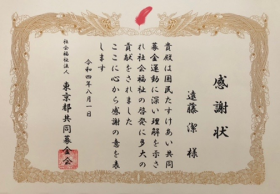 感謝状
遠藤潔様
貴殿は国民たすけあい共同
募金運動に深い理解を示さ
れ社会福祉の啓発に多大の
貢献をされました
ここに心から感謝の意を表
します
令和四年八月一日
社会福祉法人
東京都共同募金会